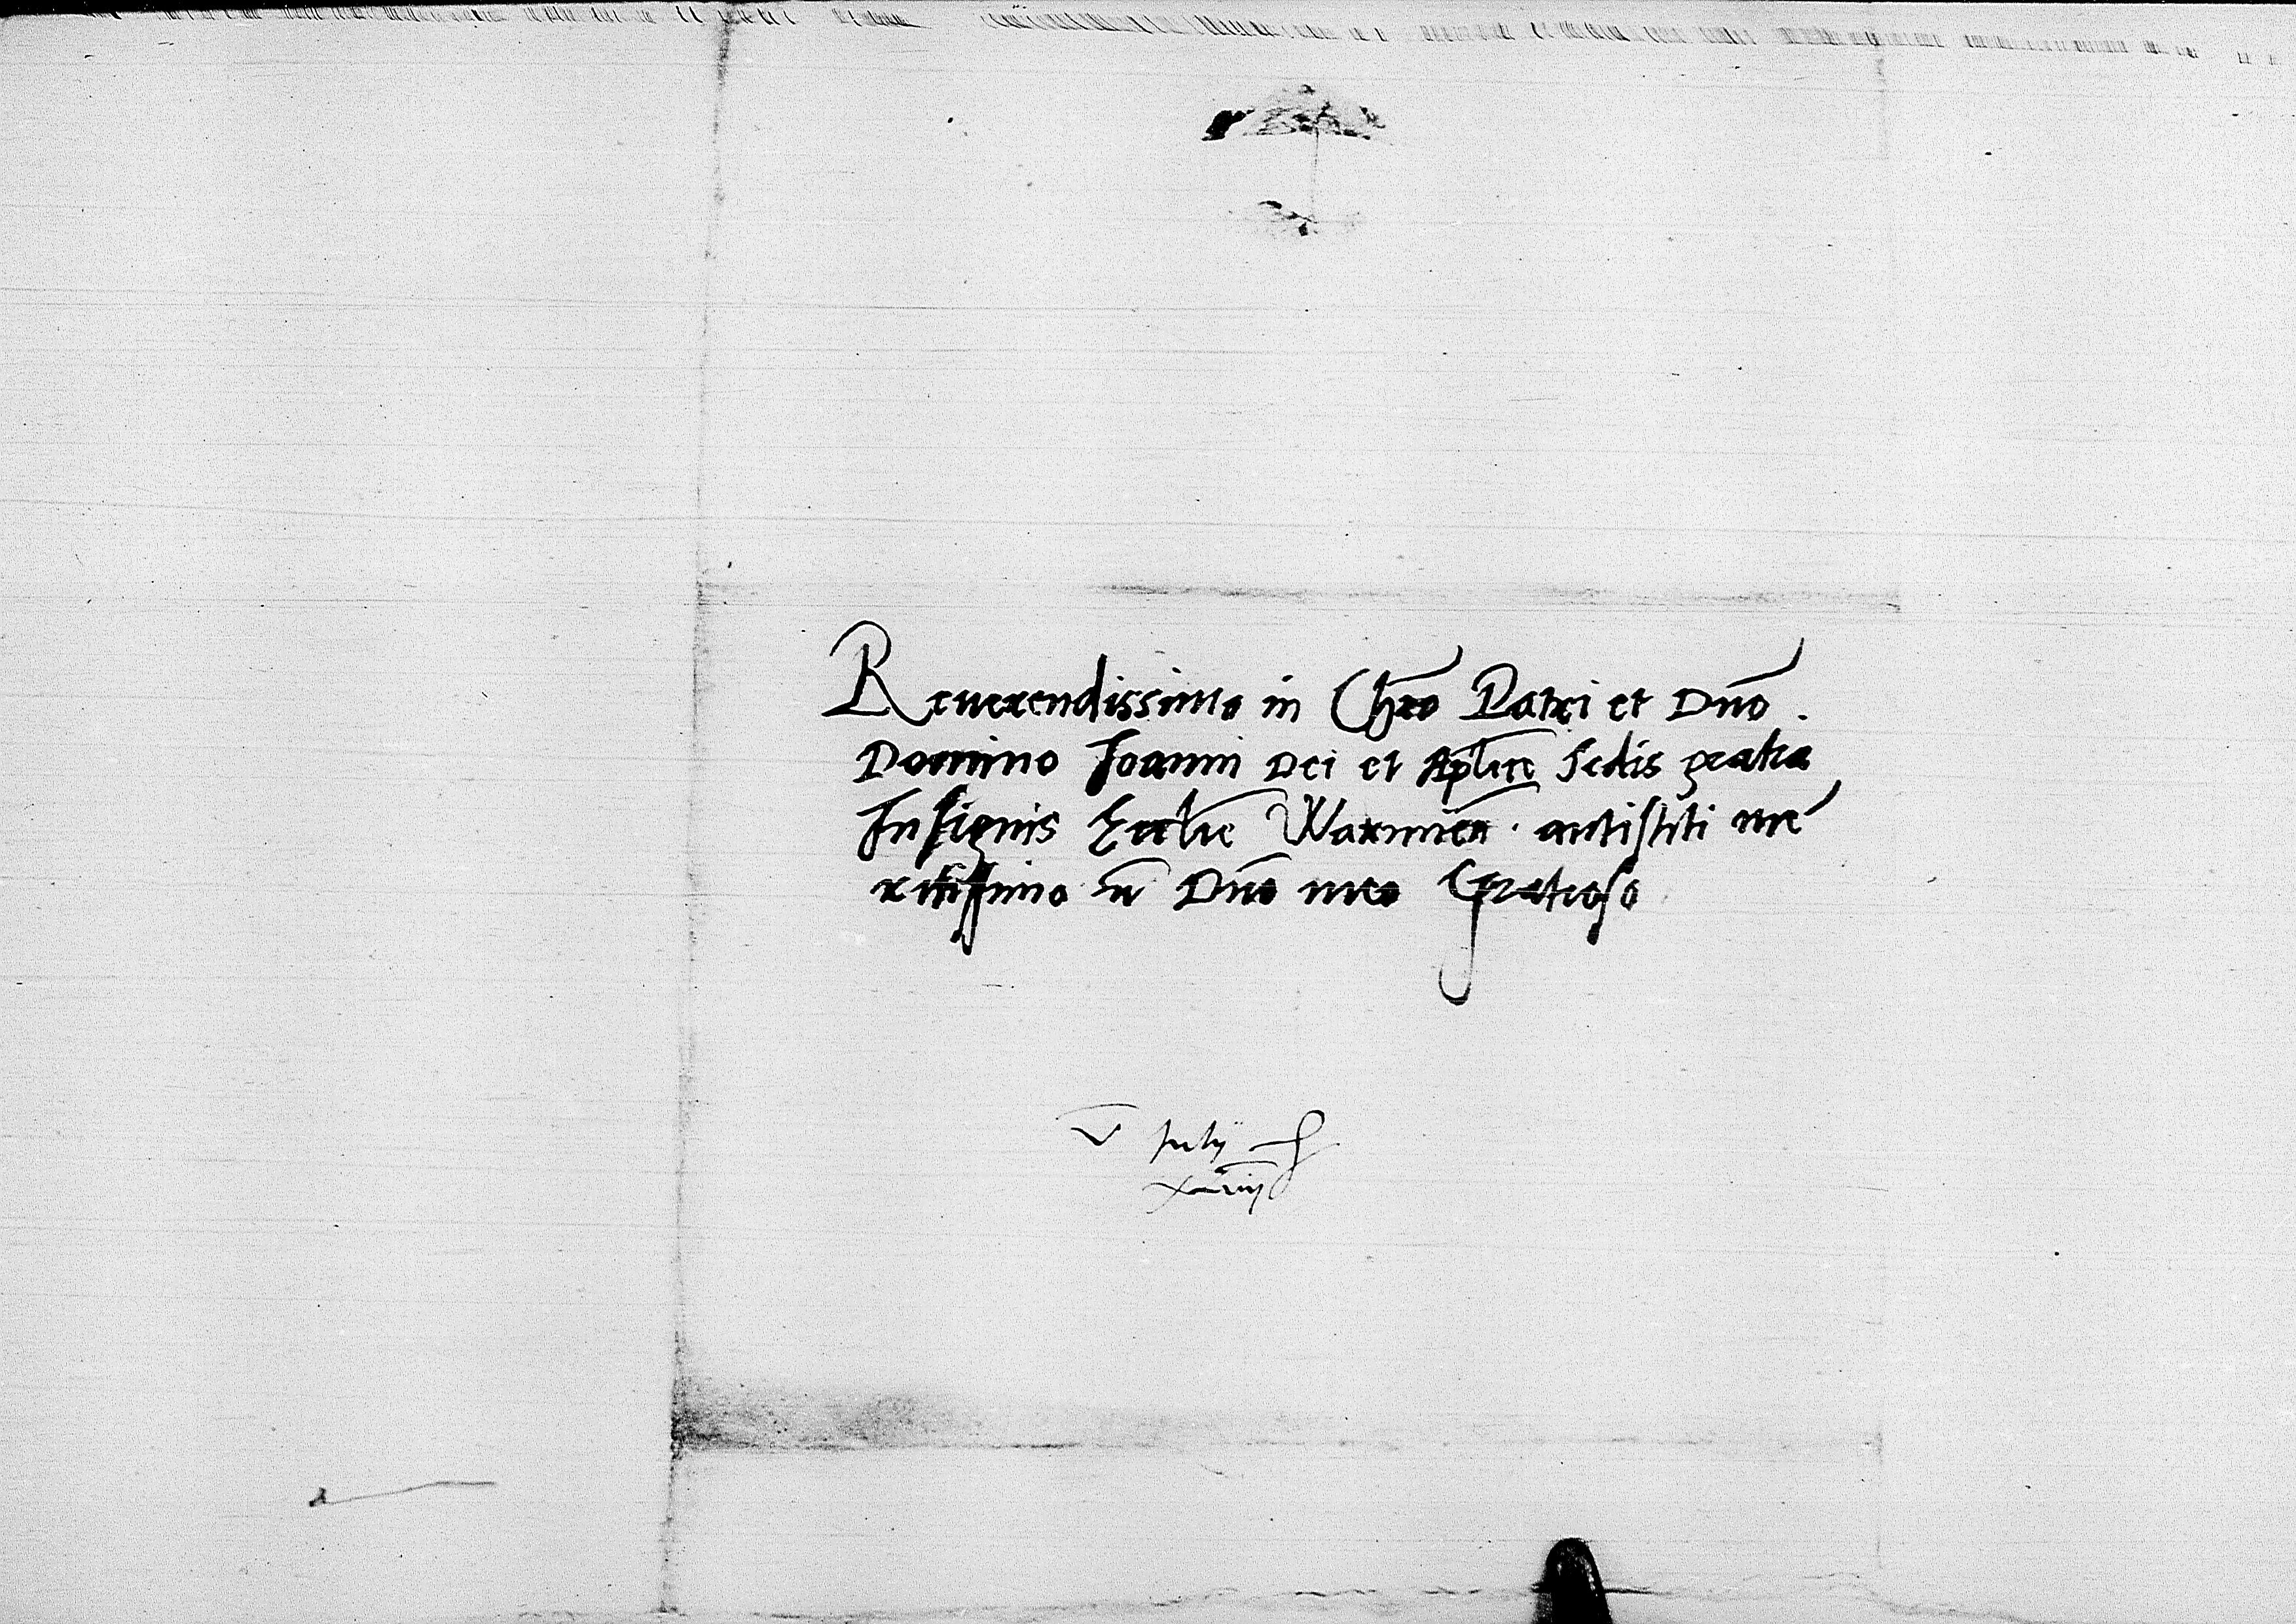 Reuerendissimo in Chr̄o Patri et Dn̄o.
Domino Joanni Dei et Ap̄lice Sedis gratia
Insignis Eccl̄ie Warmieñ. antistiti me
ritissimo ac Dn̄o meo Gratioso
V Julij